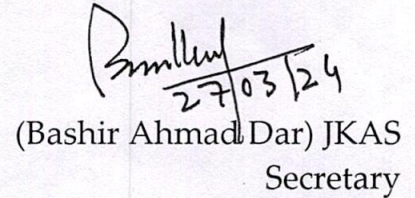 27/03/24
(Bashir Ahmad Dar) JKAS
Secretary